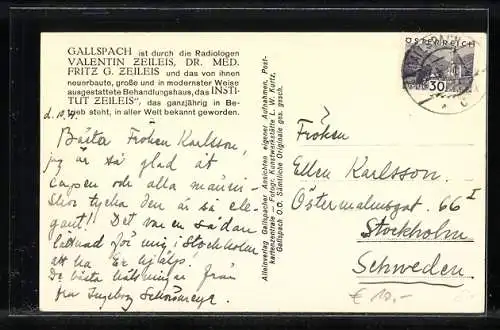 GALLSPACH ist durch die Radiologen
VALENTIN ZEILEIS, DR. MED.
FRITZ G. ZEILEIS und das von ihnen
neuerbaute, große und in modernster Weise
ausgestattete Behandlungshaus, das „INSTI-
TUT ZEILEIS", das ganzjährig in Be-
trieb steht, in aller Welt bekannt geworden.
Bästa Fröken Karlsson,
jag är så glad åt
capen och alla
tycka den är så ele-
gant! Det var en sådan
lättnad för mig i Stockholm
att ha Er hjälp.
De bästa hälsningar från
Ingeborg
Alleinverlag Gallspacher Ansichten eigener Aufnahmen, Post-
kartenzentrale – Fotogr. Kunstwerkstätte L. W. Kurtz,
Gallspach O.Ö. Sämtliche Originale ges. gesch.
ÖSTERREICH
30
Fröken
Ellen Karlsson.
Östermalmsgat. 66 I
Stockholm
Schweden.
€ 10,-